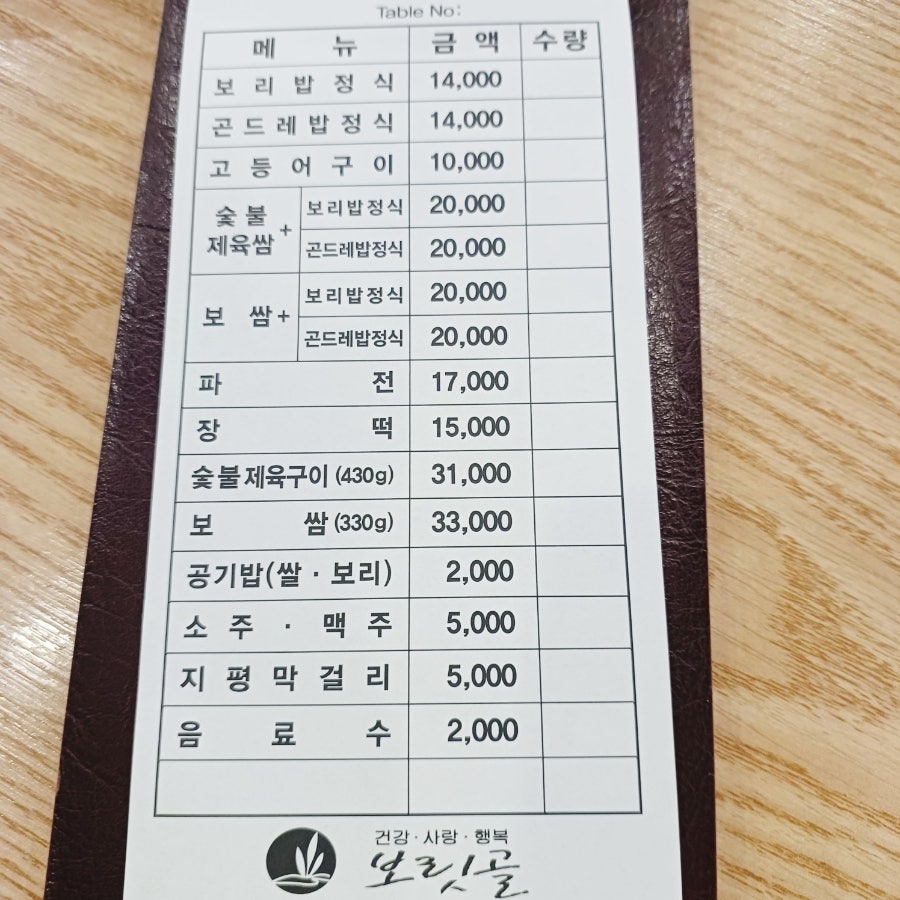 Table No:
메 뉴 금 액 수량
보 리 밥 정 식 14,000
곤 드 레 밥 정 식 14,000
고 등 어 구 이 10,000
숯 불 제육쌈 + 보리밥정식 20,000
곤드레밥정식 20,000
보 쌈 + 보리밥정식 20,000
곤드레밥정식 20,000
파 전 17,000
장 떡 15,000
숯불제육구이 (430g) 31,000
보 쌈 (330g) 33,000
공기밥(쌀 · 보리) 2,000
소 주 · 맥 주 5,000
지 평 막 걸 리 5,000
음 료 수 2,000
건강 · 사랑 · 행복
보릿골